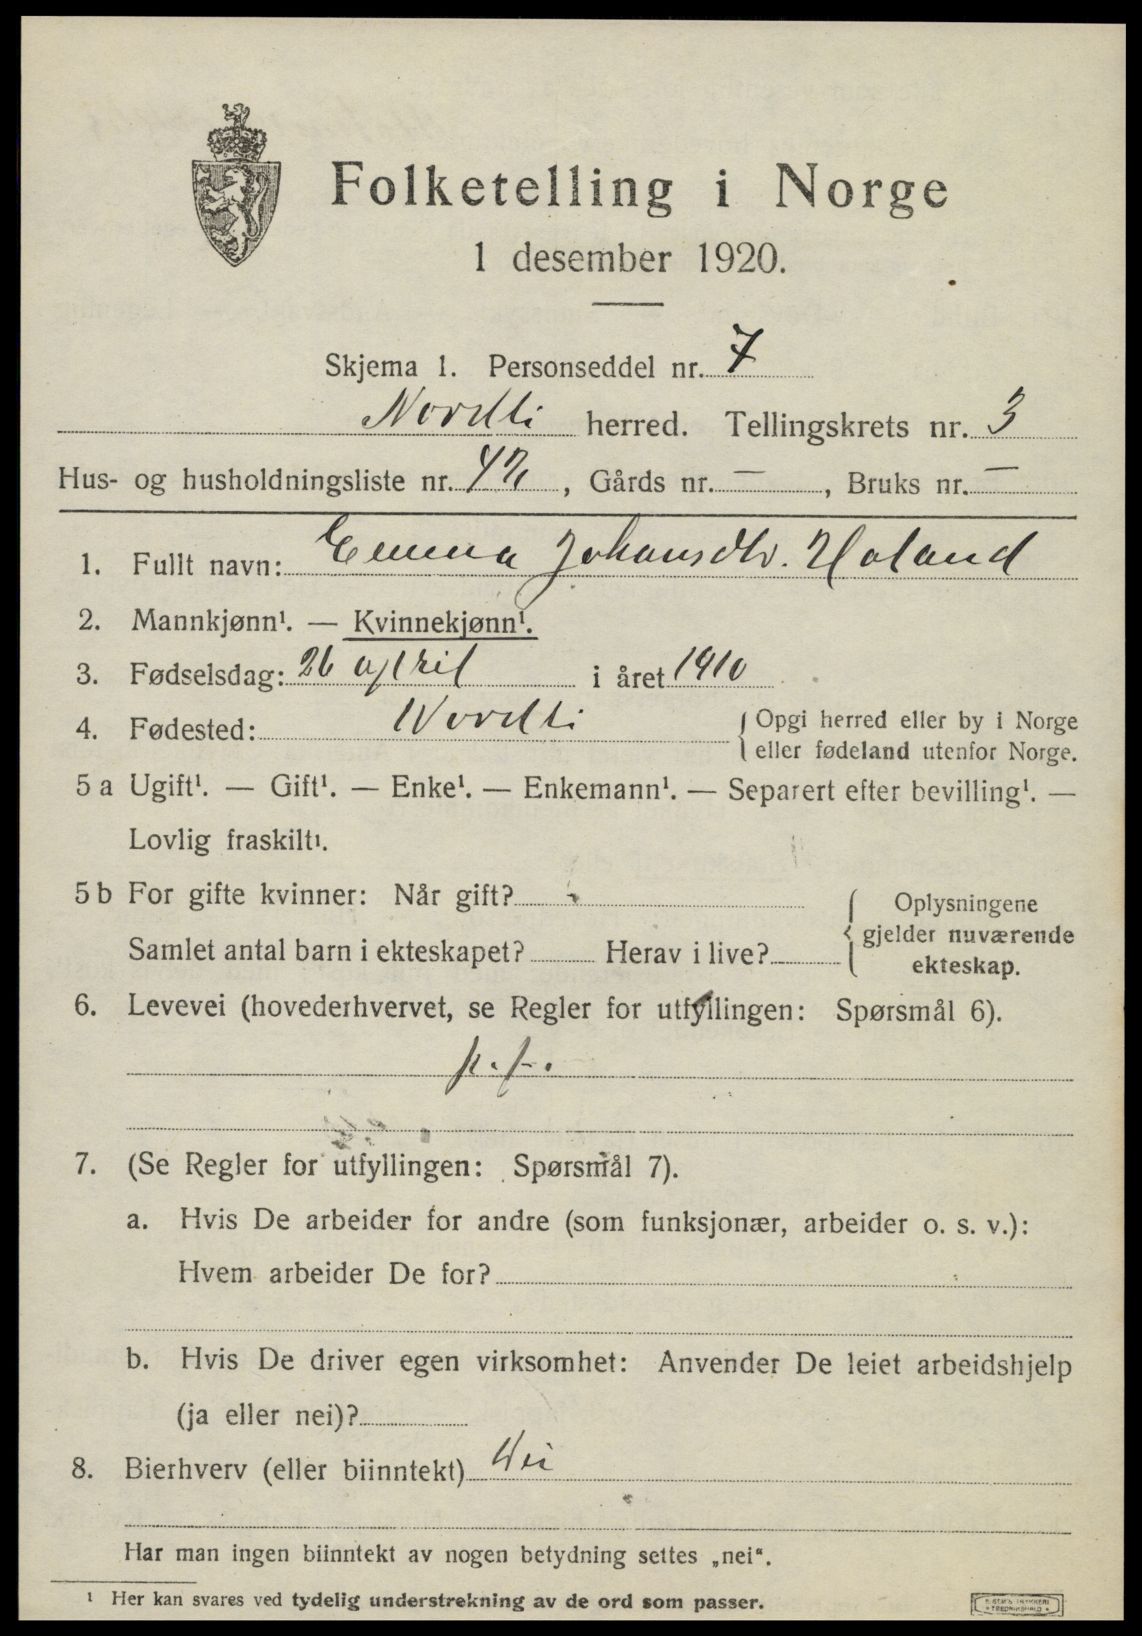 Folketelling i Norge
1 desember 1920.
Skjema 1. Personseddel nr. 7
Nordli herred. Tellingskrets nr. 3
Hus- og husholdningsliste nr. , Gårds nr. — , Bruks nr. —
1. Fullt navn: Emma Johansdtr. Holand
2. Mannkjønn¹. — Kvinnekjønn¹.
3. Fødselsdag: 26 april i året 1910
4. Fødested: Nordli { Opgi herred eller by i Norge
eller fødeland utenfor Norge.
5 a Ugift¹. — Gift¹. — Enke¹. — Enkemann¹. — Separert efter bevilling¹. —
Lovlig fraskilt¹.
5 b For gifte kvinner: Når gift?
Samlet antal barn i ekteskapet? Herav i live?
{ Oplysningene
gjelder nuværende
ekteskap.
6. Levevei (hovederhvervet, se Regler for utfyllingen: Spørsmål 6).
p. f.
7. (Se Regler for utfyllingen: Spørsmål 7).
a. Hvis De arbeider for andre (som funksjonær, arbeider o. s. v.):
Hvem arbeider De for?
b. Hvis De driver egen virksomhet: Anvender De leiet arbeidshjelp
(ja eller nei)?
8. Bierhverv (eller biinntekt) Nei
Har man ingen biinntekt av nogen betydning settes „nei“.
¹ Her kan svares ved tydelig understrekning av de ord som passer.